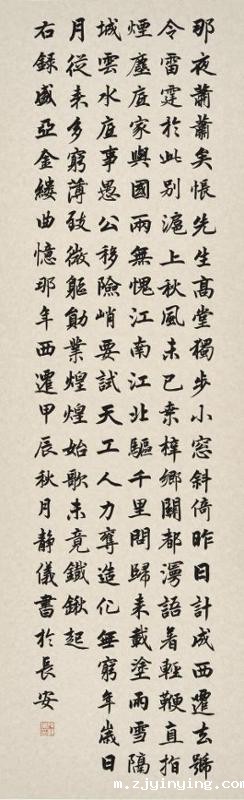 那夜蕭蕭矣悵先生高堂獨步小窗斜倚昨日計成西遷去號
令雷霆於此別滬上秋風未已棄梓鄉關都謾語著輕鞭直指
煙塵底家與國兩無愧江南江北驅千里問歸來載塗雨雪隔
城雲水底事愚公移險峭要試天工人力奪造化無窮年歲日
月從來多窮薄致微軀勛業煌煌始歌未竟鐵鍬起
右錄盛亞金縷曲憶那年西遷甲辰秋月靜儀書於長安
m.zjyinying.com